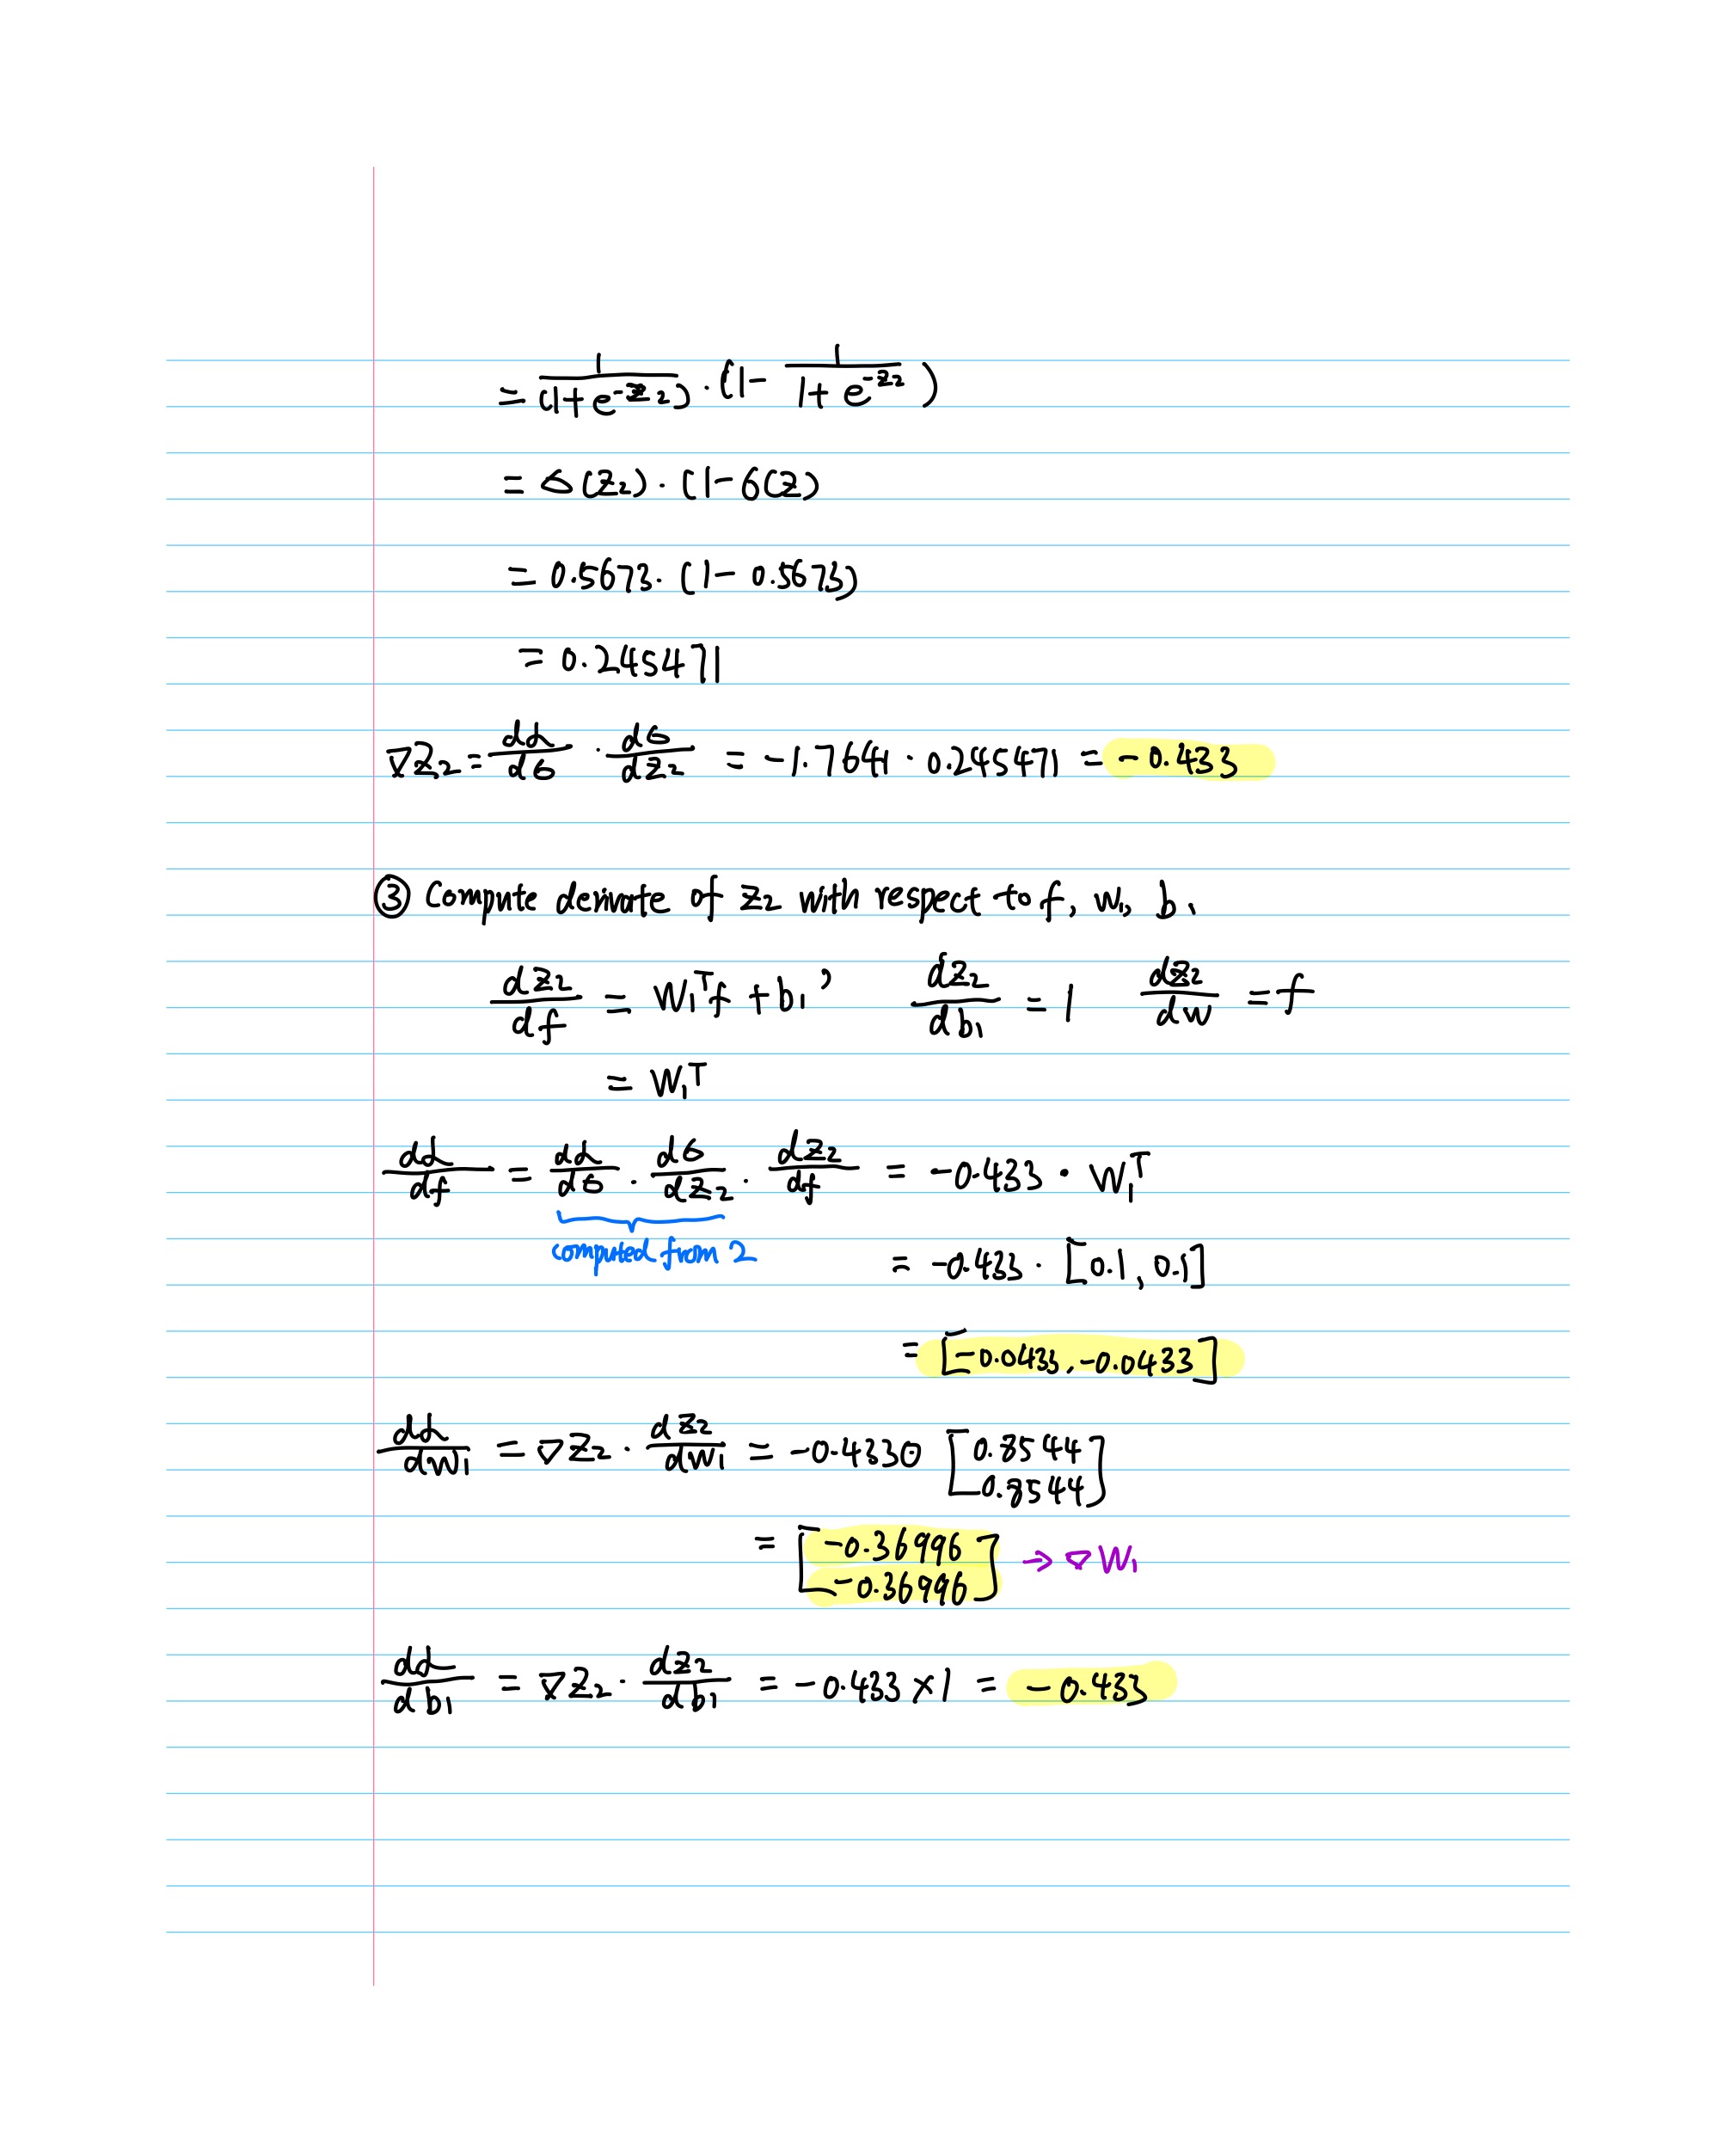 = 1/(1+e^-z₂) · (1 - 1/1+e^-z₂)
= σ(z₂) · (1-σ(z)
= 0.5673 · (1 - 0.5673)
= 0.245471
∇Z₂ = dL/dσ · dσ/dZ₂ = -1.7641 · 0.245471 = -0.433
③ Compute derivate of z₂ with respect to f, w₁, b₁
dz₂/df = W₁ᵀf + b₁' dz₂/db₁ = 1 dz₂/dw = f
= W₁ᵀ
dL/df = dL/dσ · dσ/dz₂ · dz₂/df = -0.433 · W₁ᵀ
computed from 2
= -0.433 · [0.1, 0.1]
= [-0.0433, -0.0433]
dL/dW₁ = ∇Z₂ · dz₂/dW₁ = -0.4330 [0.8544
0.8544]
= [-0.36996
-0.36996] → ∇W₁
dL/db₁ = ∇Z₂ · dz₂/db₁ = -0.433 × 1 = -0.433